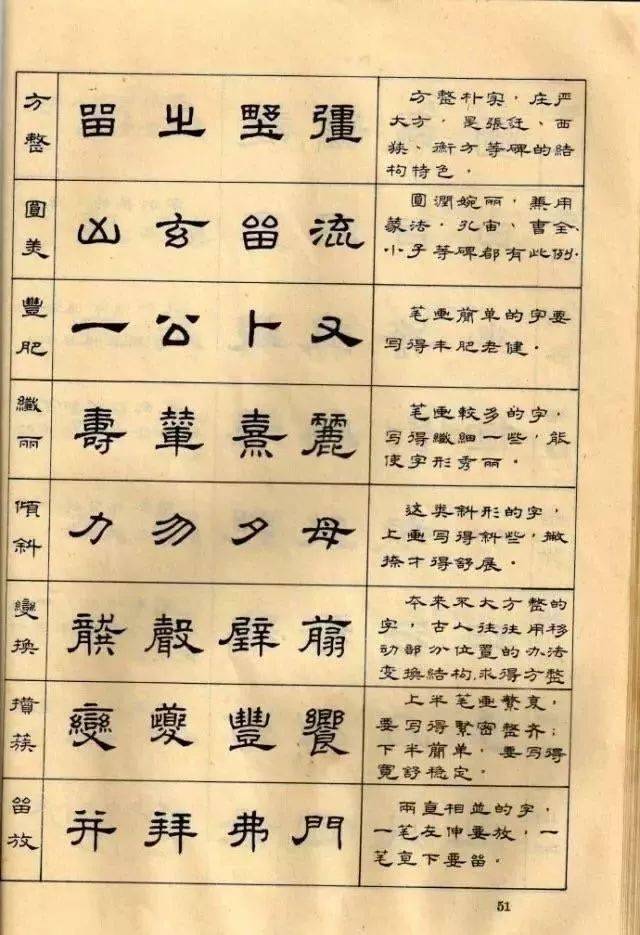 方整
畱 㞢 堅 彊
方整朴实，庄严
大方，是張迁、西
狭、衡方等碑的結
构特色。
圓美
凶 玄 畱 流
圓潤婉丽，兼用
篆法，孔宙、曹全、
小子等碑都有此例.
豐肥
一 公 卜 又
笔画簡单的字要
写得丰肥老健。
纖丽
壽 輦 熹 麗
笔画較多的字，
写得纖細一些，能
使字形秀丽。
傾斜
力 勿 夕 母
这类斜形的字，
上画写得斜些，撇
捺才得舒展。
變换
龔 聲 壁 翦
本来不大方整的
字，古人往往用移
动部分位置的办法
变换結构，求得方整
攢蔟
變 夔 豐 饗
上半笔画繁衰，
要写得緊密整齐；
下半簡单，要写得
寬舒稳定。
畱放
并 拜 弗 門
兩直相並的字，
一笔左伸要放，一
笔直下要畱。
51